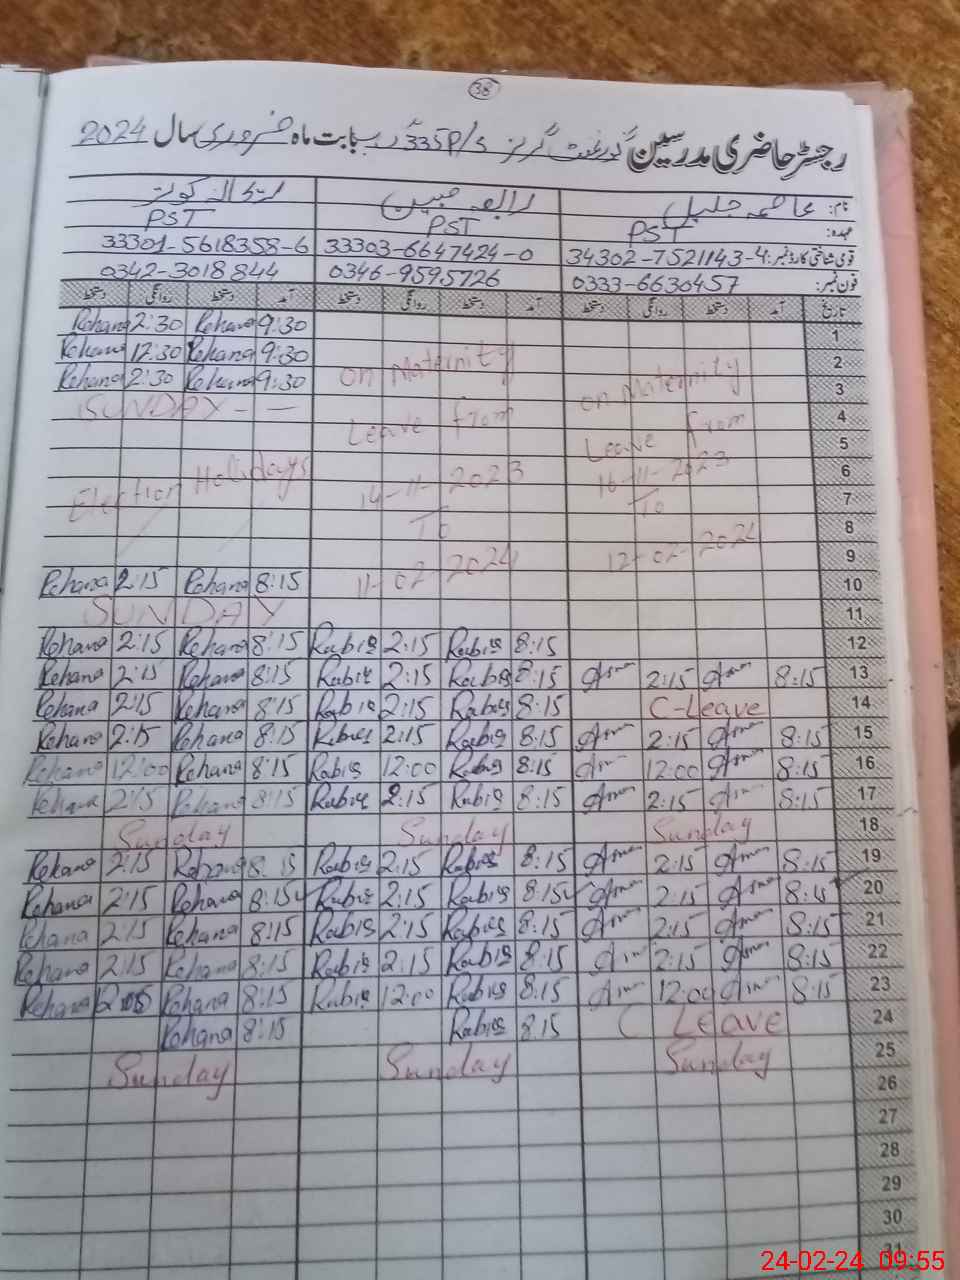 38
رجسٹر حاضری مدرسین گورنمنٹ گرلز 335 P/S ر۔ب بابت ماہ فروری سال 2024
نام: عاصمہ جلیل رابعہ مبین ریحانہ کوثر
عہدہ: PST PST PST
قومی شناختی کارڈ نمبر: 34302-7521143-4 33303-6647424-0 33301-5618358-6
فون نمبر: 0333-6630457 0346-9595726 0342-3018844
تاریخ آمد دستخط روانگی دستخط آمد دستخط روانگی دستخط آمد دستخط روانگی دستخط
Rehana 2:30 Rehana 9:30 1
Rehana 12:30 Rehana 9:30 2
Rehana 2:30 Rehana 9:30 on Maternity on Maternity 3
SUNDAY - — Leave from Leave from 4
5
Election Holidays 14-11-2023 16-11-2023 6
To To 7
8
11-02-2024 12-02-2024 9
Rehana 2:15 Rehana 8:15 10
SUNDAY 11
Rehana 2:15 Rehana 8:15 Rabia 2:15 Rabia 8:15 12
Rehana 2:15 Rehana 8:15 Rabia 2:15 Rabia 8:15 Asma 2:15 Asma 8:15 13
Rehana 2:15 Rehana 8:15 Rabia 2:15 Rabia 8:15 C-Leave 14
Rehana 2:15 Rehana 8:15 Rabia 2:15 Rabia 8:15 Asma 2:15 Asma 8:15 15
Rehana 12:00 Rehana 8:15 Rabia 12:00 Rabia 8:15 Asma 12:00 Asma 8:15 16
Rehana 2:15 Rehana 8:15 Rabia 2:15 Rabia 8:15 Asma 2:15 Asma 8:15 17
Sunday Sunday Sunday 18
Rehana 2:15 Rehana 8:15 Rabia 2:15 Rabia 8:15 Asma 2:15 Asma 8:15 19
Rehana 2:15 Rehana 8:15 Rabia 2:15 Rabia 8:15 Asma 2:15 Asma 8:15 20
Rehana 2:15 Rehana 8:15 Rabia 2:15 Rabia 8:15 Asma 2:15 Asma 8:15 21
Rehana 2:15 Rehana 8:15 Rabia 2:15 Rabia 8:15 Asma 2:15 Asma 8:15 22
Rehana Rehana 8:15 Rabia 12:00 Rabia 8:15 Asma 12:00 Asma 8:15 23
Rehana 8:15 Rabia 8:15 C Leave 24
Sunday Sunday Sunday 25
26
27
28
29
30
31
24-02-24 09:55